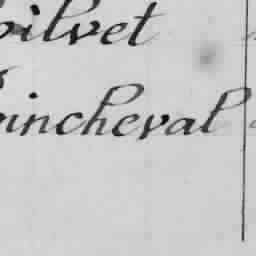 oilvet
vincheval